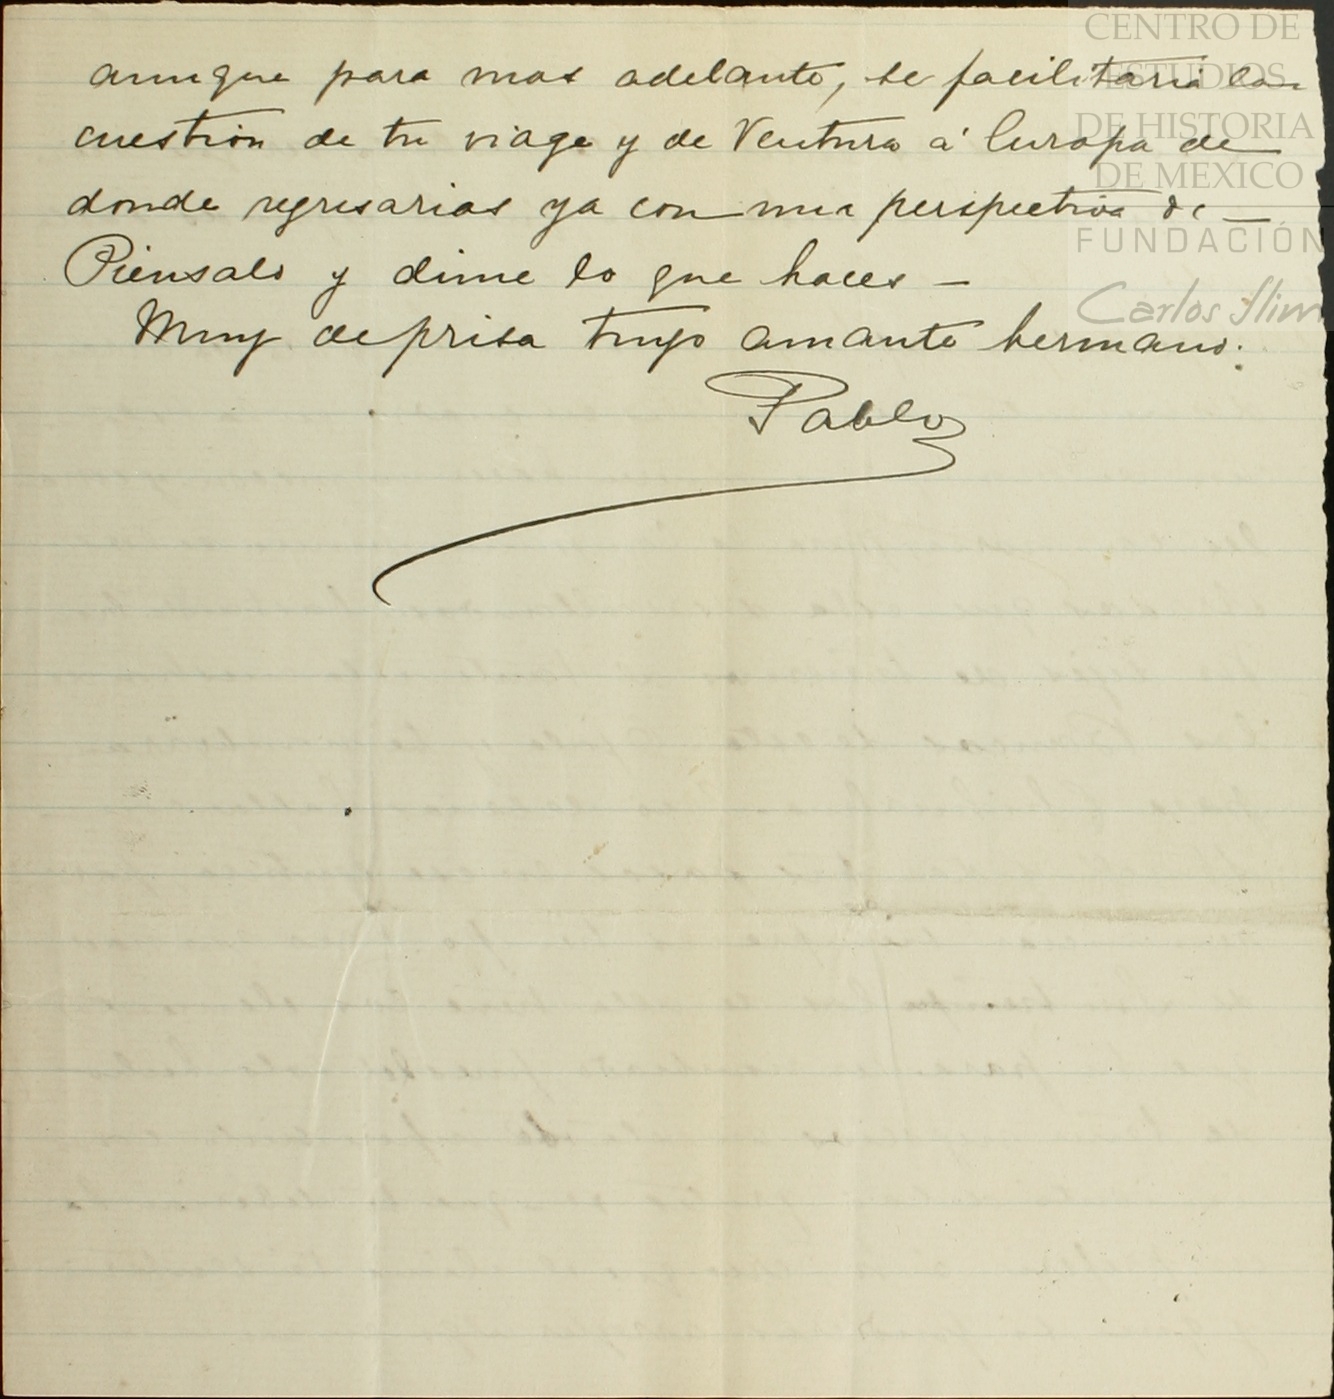 aunque para mas adelante, se facilitaria la
cuestión de tu viage y de Ventura á Europa de
donde regresarias ya con una perspectiva de —
Piensalo y dime lo que haces —
Muy deprisa tuyo amante hermano.
Pablo
CENTRO DE
ESTUDIOS
DE HISTORIA
DE MEXICO
FUNDACIÓN
Carlos Slim